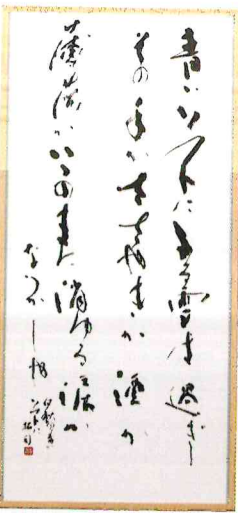 青いソフトにふる雪は過ぎし
その手かささやきか酒か
薄荷かいつのまに消ゆる涙か
なつかしや